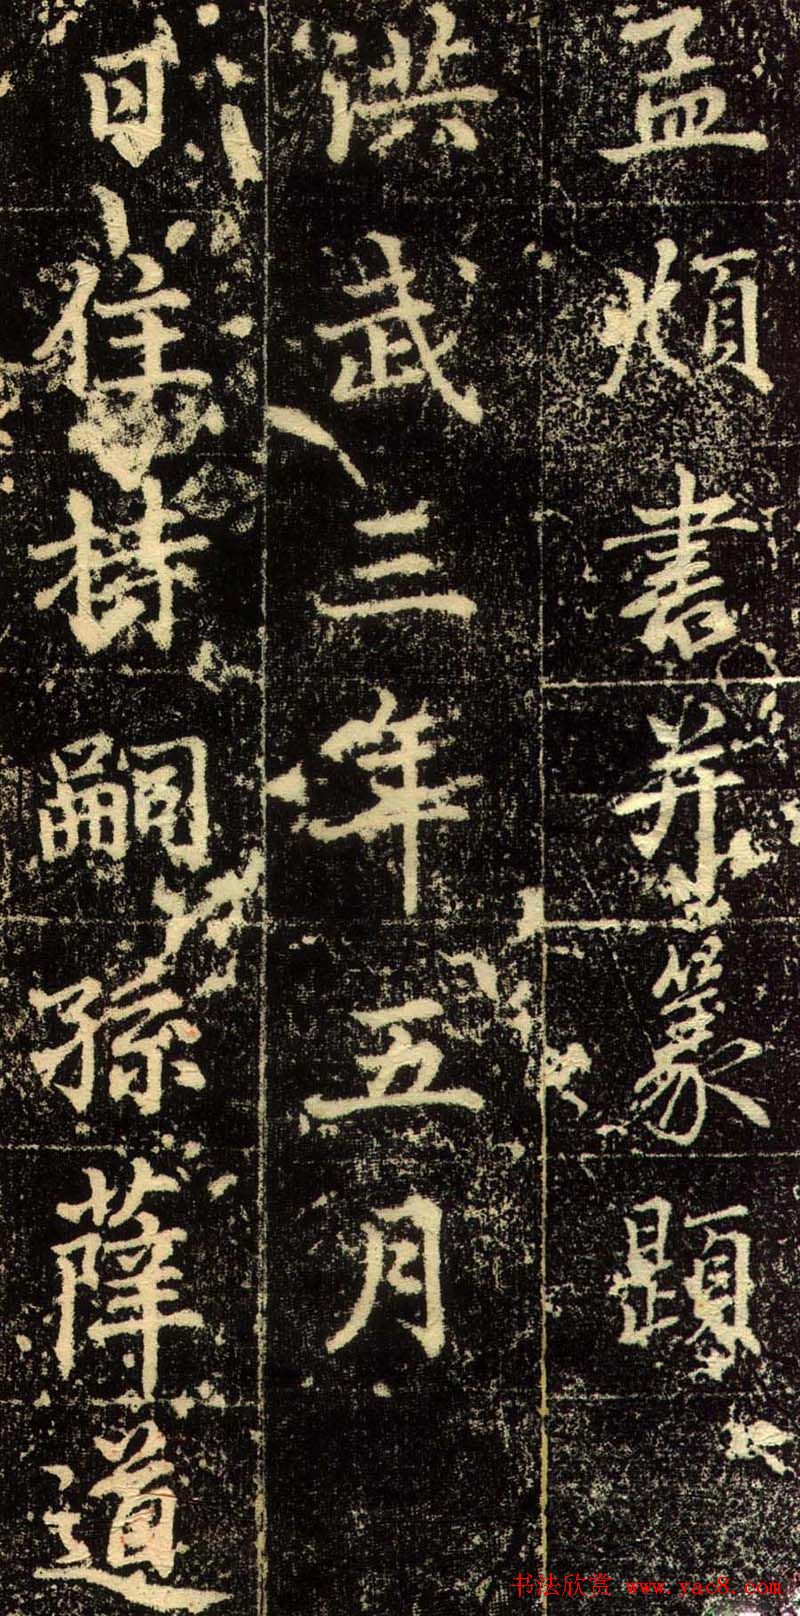 孟頫書并篆題
洪武三年五月
日住持嗣孫薛道
书法欣赏 www.yac8.com